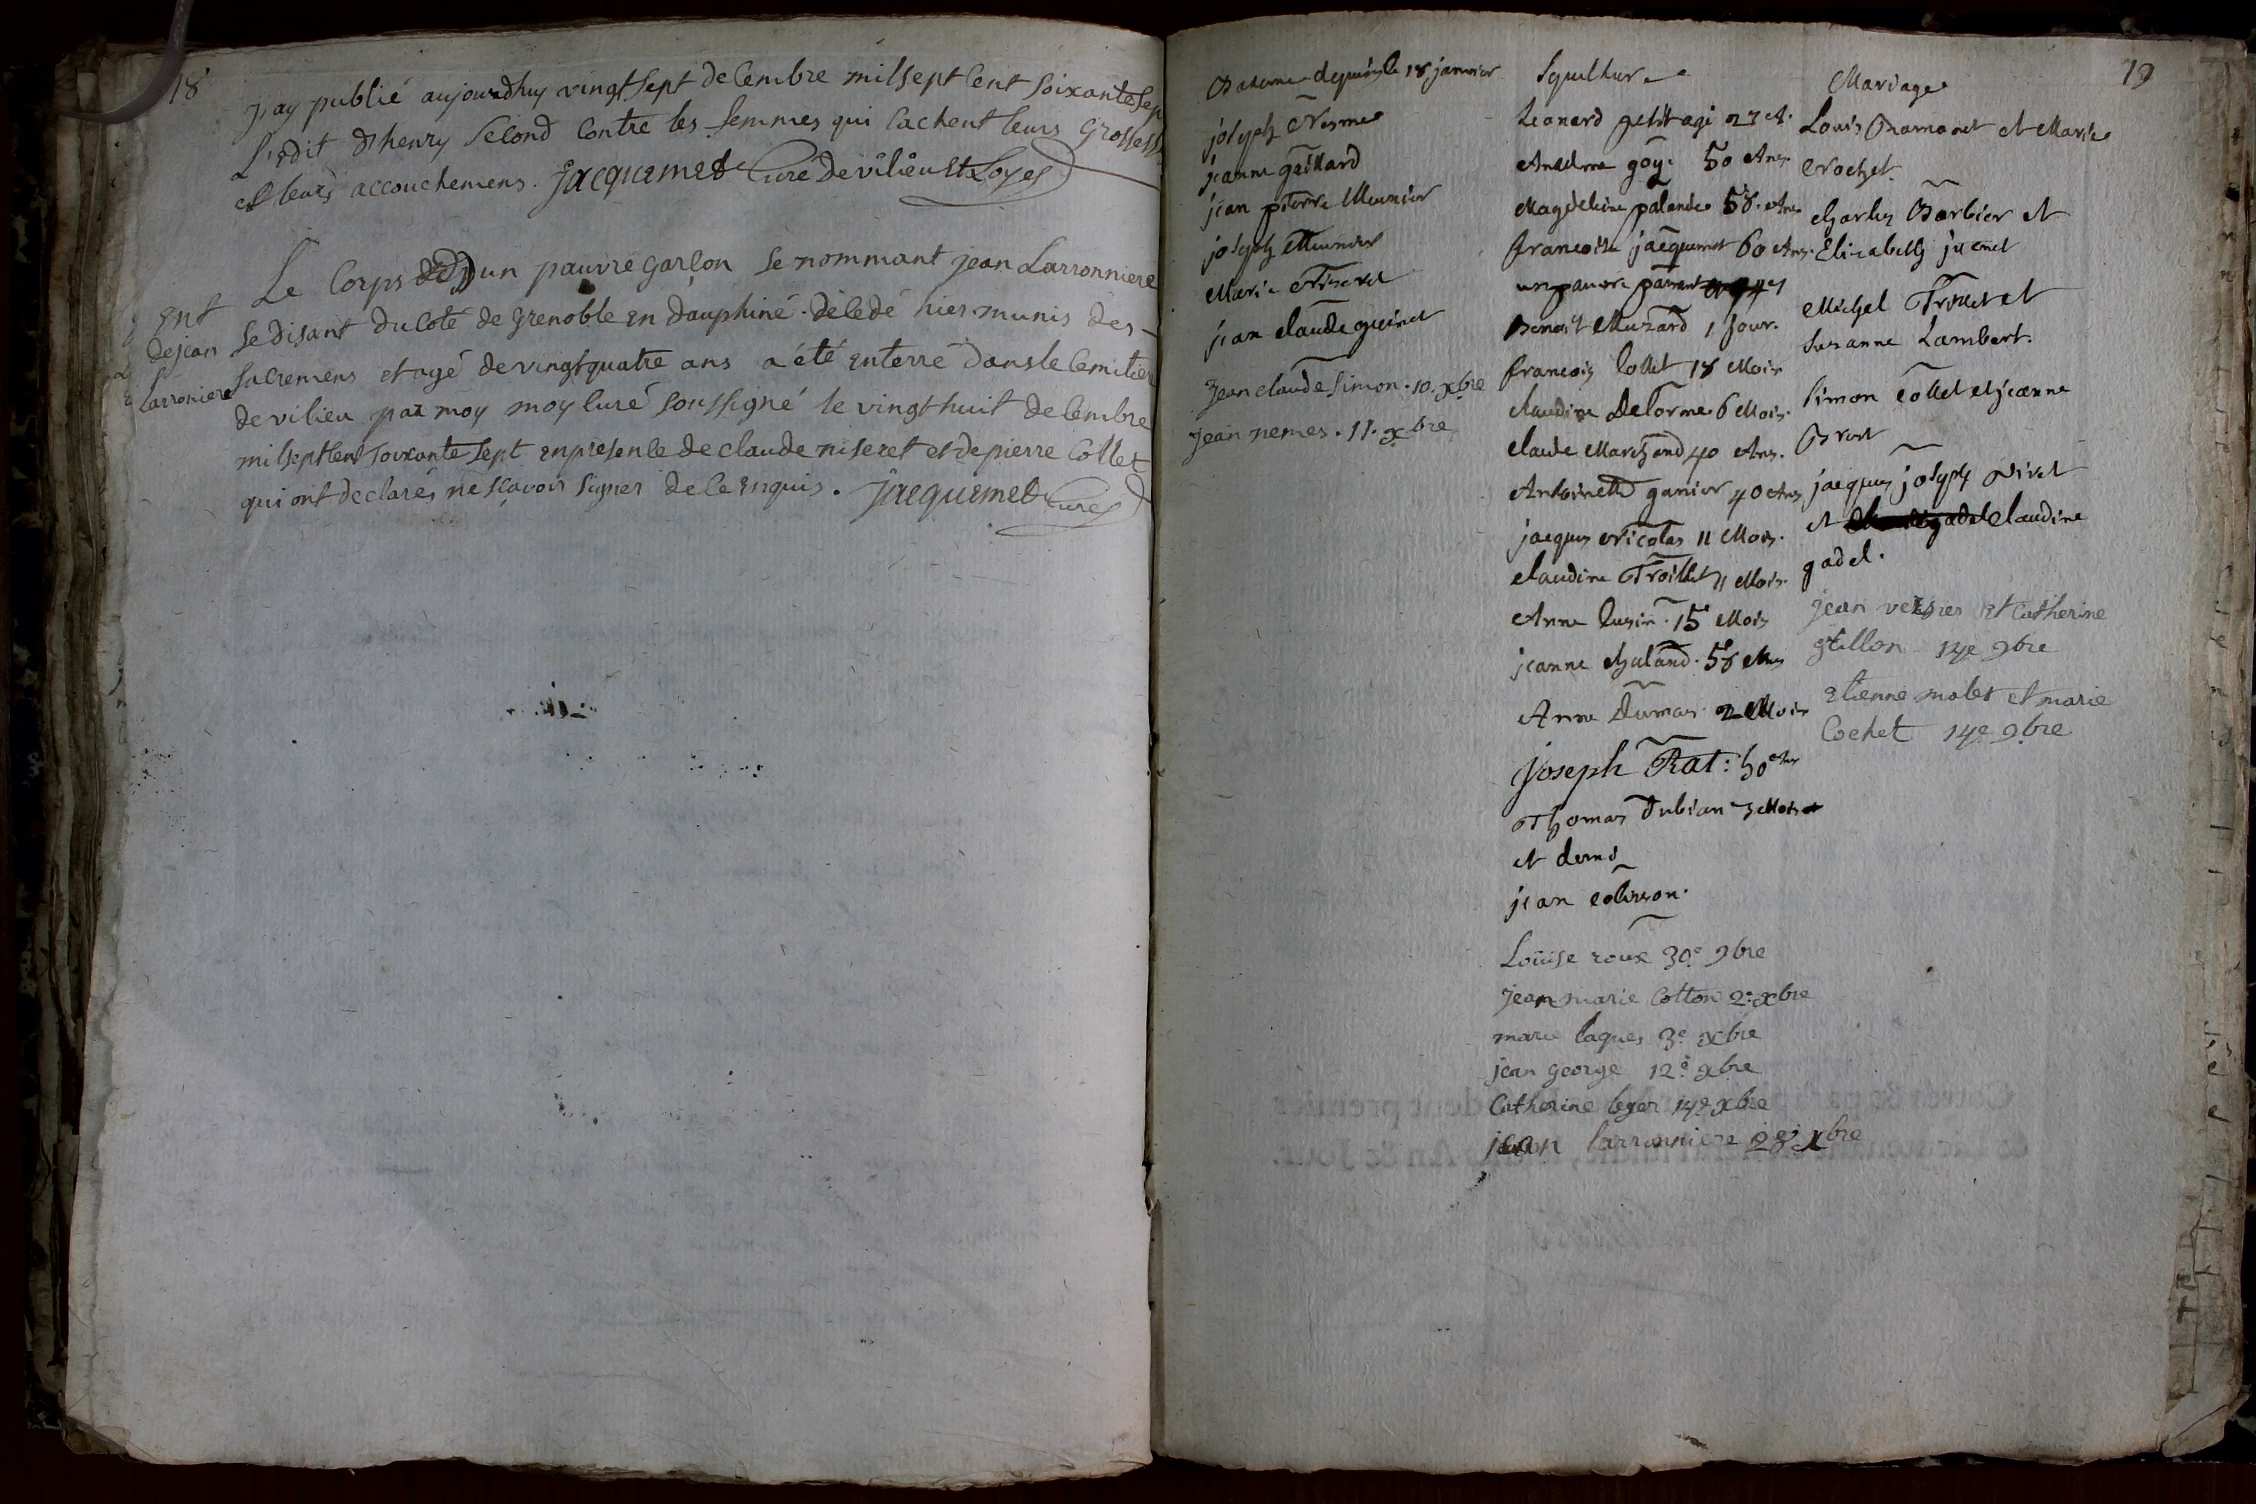 18
J'ay publié aujourdhuy vingt sept decembre mil sept cent soixante sep
L'edit d'henry second contre les femmes qui cachent leurs grossess
et leurs accouchemens. Jacquemet Curé de vilieu St Loyes
Ent
de jean
Larroniere
Le Corps d'un pauvre garçon se nommant jean Larronniere
se disant du coté de grenoble en dauphiné decedé hier munis des
sacremens et agé de vingt quatre ans a été enterré dans le cemitiere
de vilieu par moy moy curé soussigné le vingt huit decembre
mil sept cent soixante sept en presence de claude niseret et de pierre Collet
qui ont declarés ne sçavoir signer de ce enquis. Jacquemet Curé
19
Bateme depuis le 18 janvier
joseph Nesme
jeanne gaillard
jean pierre Meunier
joseph Meunier
Marie
jean claude guinet
Jean claude simon. 10. xbre
jean nemes. 11. xbre
Sepulture
Leonard petit agé 27 A.
Andelme goy. 50 Ans
Magdeleine palande 58. Ans
francoise jacquemet 60 Ans.
un pauvre passant
Benoit Muzard 1 jour.
francois Collet 18 Mois
claudine Delorme 6 Mois.
claude Marchand 40 Ans.
Antoinette ganier 40 Ans
jacques Nicolas 11 Mois.
claudine Troillet 11 Mois
Anne Cusin. 15 Mois
jeanne chaland. 58 Ans
Anne Dumas. 2 Mois
Joseph Rat: 50 Ans
Thomas Dubian 3 Mois
et demi
jean
Loüise roux 30e 9bre
jean marie Cotton 2e xbre
marie Caques 3e xbre
jean george 12e xbre
Catherine leger 14e xbre
jean larronniere 28 xbre
Mariage
Louis Bramanet et Marie
Crochet.
Charles Barbier et
Elizabeth juenet
Michel Trollet et
Suzanne Lambert.
Simon Collet et jeanne
Brost
jacques joseph Nivet
et claudine
gadel.
jean versier et Catherine
grillon 14e 9bre
Etienne molet et marie
Cochet 14e 9bre